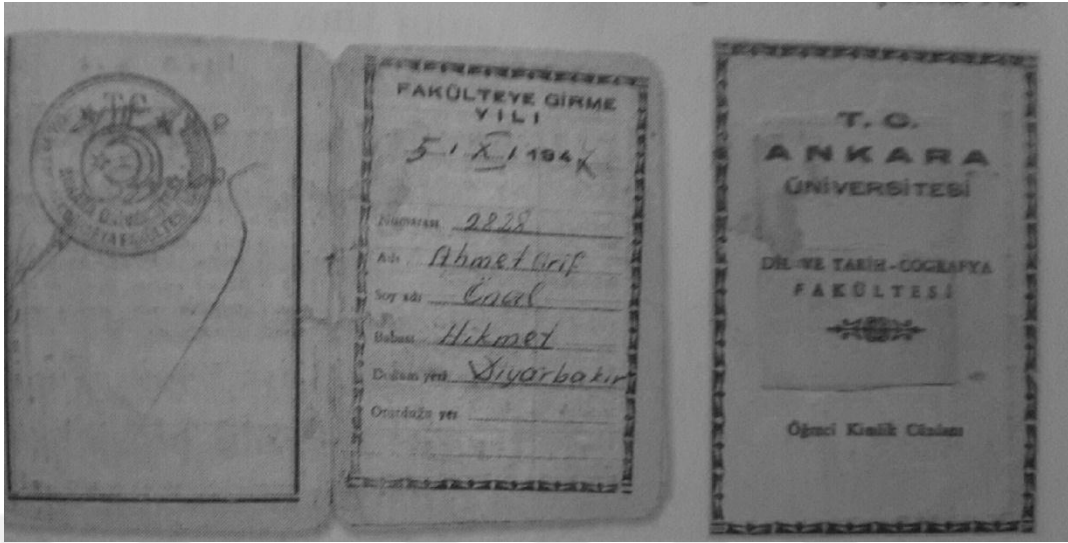 T.C.
FAKÜLTEYE GİRME
YILI
5 / X / 194
Numarası 2828
Adı Ahmet Arif
Soy adı Önal
Babası Hikmet
Doğum yeri Diyarbakır
Oturduğu yer
T. C.
ANKARA
ÜNİVERSİTESİ
DİL VE TARİH-COĞRAFYA
FAKÜLTESİ
Öğrenci Kimlik Cüzdanı